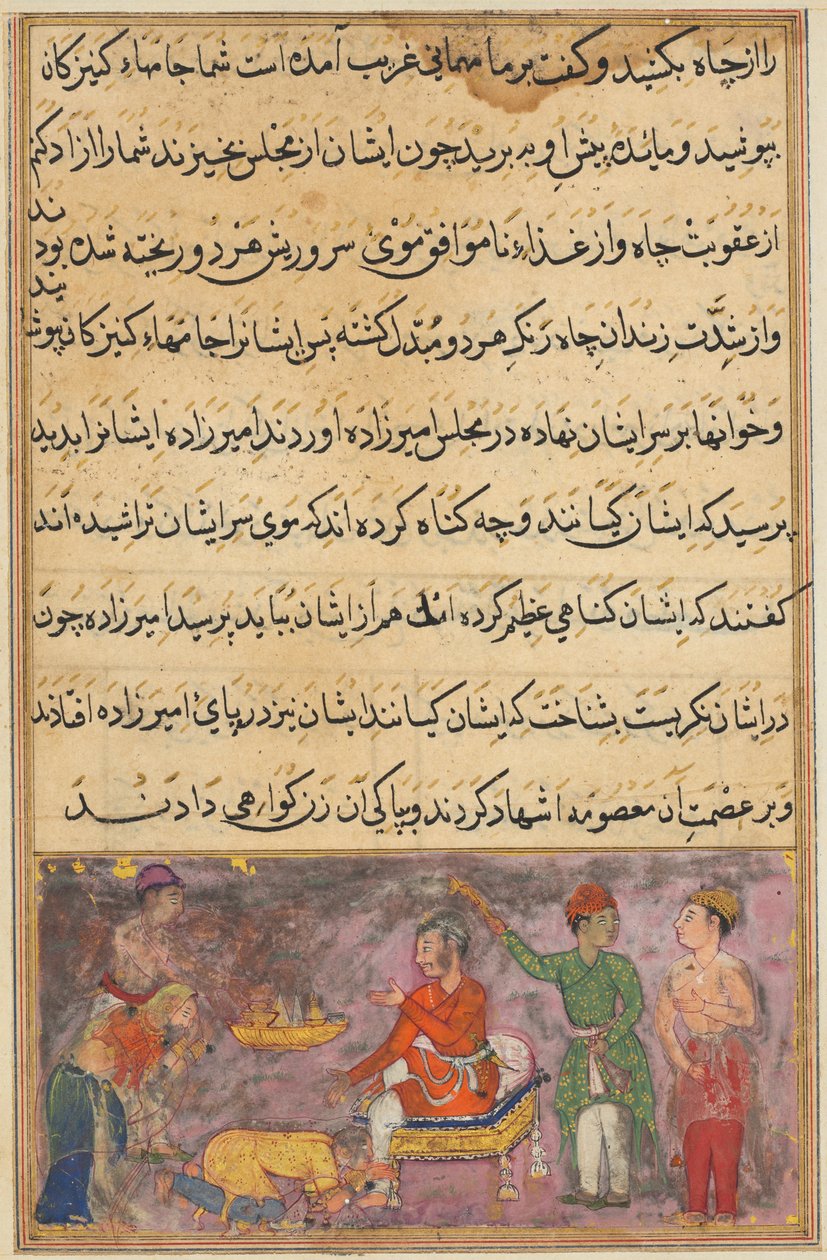 را از چاه بکشید و کفت بر ما مهمانی غریب آمده است شما جامهاءِ کنیزکان
بپوشید و مائده پیش او به برید چون ایشان از مجلس بخیزند شما را ازاد کنم
از عقوبت چاه و از غذاءِ ناموافق موئ سر و ریش هر دو ریخته شده بود
و از شدّت زندان چاه رنک هر دو مبدّل کشته پس ایشانرا جامهاءِ کنیزکان پوشا
نیدند
و خوانها بر سر ایشان نهاده در مجلس امیرزاده اوردند امیرزاده ایشانرا بدید
پرسید که ایشان کیانند و چه کناه کرده اند که موی سر ایشان تراشیده اند
کفتند که ایشان کناهی عظیم کرده اند هم از ایشان بباید پرسید امیرزاده چون
در ایشان نکریست بشناخت که ایشان کیانند ایشان نیز در پایٔ امیرزاده افتادند
و بر عصمت ان معصومه اشهاد کردند و بپاکی آن زن کواهی دادند